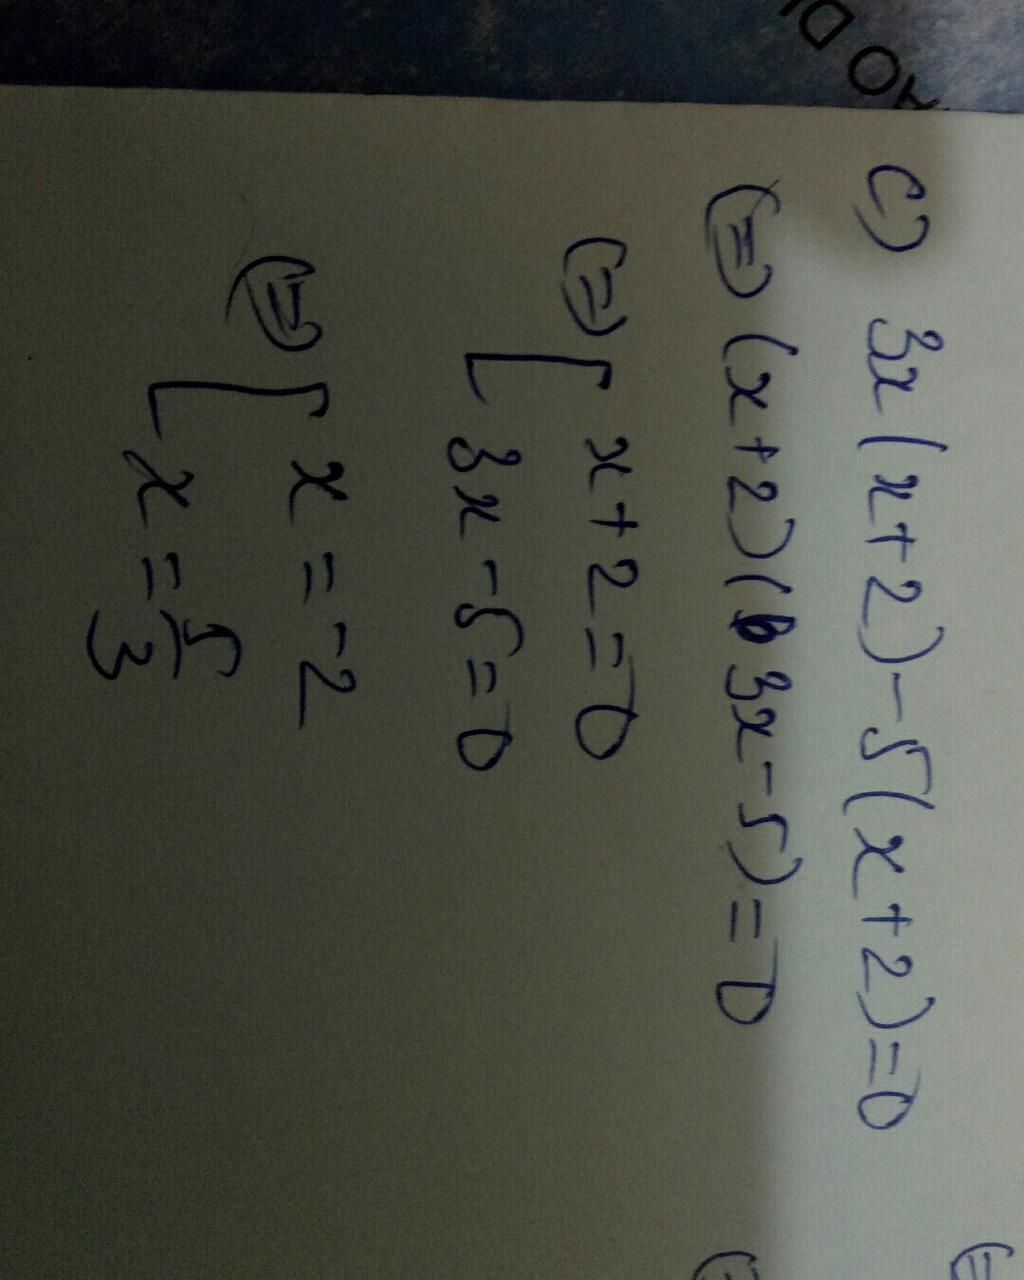 AO DU
c) 3x(x+2)-5(x+2)=0
(=) (x+2)(3x-5)=0
(=) [ x+2=0
3x-5=0
(=) [ x=-2
x=5/3
(=
(=